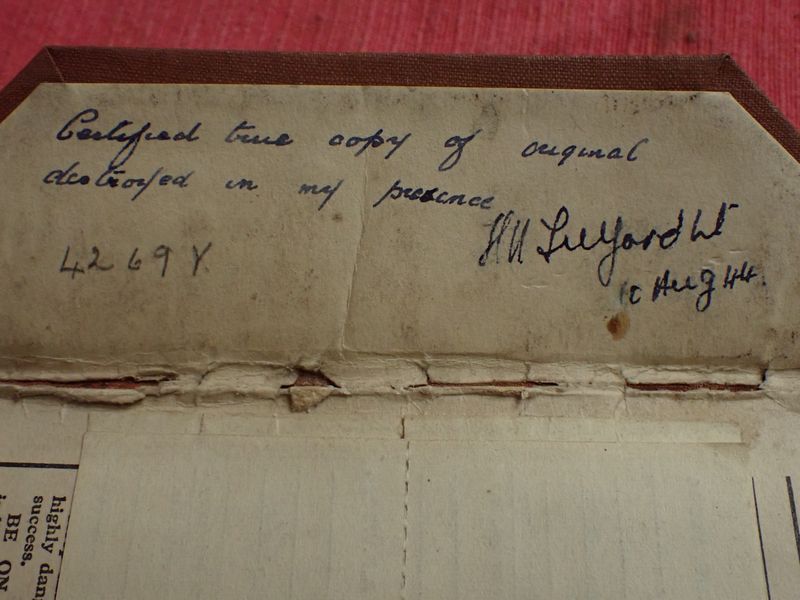 Certified true copy of original
destroyed in my presence
Lt
10 Aug 44.
4269
highly dan
success.
BE ON